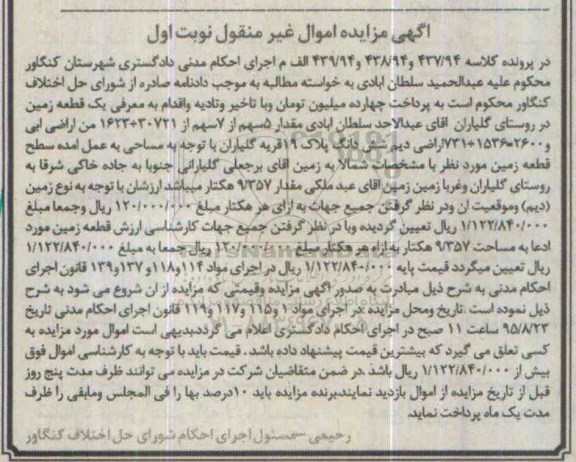 آگهی مزایده اموال غیر منقول نوبت اول
در پرونده کلاسه ۴۳۷/۹۴ و ۴۳۸/۹۴ و ۴۳۹/۹۴ الف م اجرای احکام مدنی دادگستری شهرستان کنگاور
محکوم علیه عبدالحمید سلطان ابادی به خواسته مطالبه به موجب دادنامه صادره از شورای حل اختلاف
کنگاور محکوم است به پرداخت چهارده میلیون تومان وبا تاخیر وتادیه واقدام به معرفی یک قطعه زمین
در روستای گلیاران آقای عبدالاحد سلطان ابادی مقدار ۵سهم از ۷سهم از ۳۰۷۳۱+۱۶۲۳ من اراضی ابی
و۲۶۰۰=۱۵۳۶+۷۳۱اراضی دیم شش دانگ پلاک ۱۹قریه گلیاران با توجه به مساحی به عمل امده سطح
قطعه زمین مورد نظر با مشخصات شمالا به زمین آقای برجعلی گلیارانی جنوبا به جاده خاکی شرقا به
روستای گلیاران وغربا زمین زمین آقای عبد ملکی مقدار ۹/۳۵۷ هکتار میباشد ارزشان با توجه به نوع زمین
(دیم) وموقعیت ان ودر نظر گرفتن جمیع جهات به ازای هر هکتار مبلغ ۱۲۰/۰۰۰/۰۰۰ ریال وجمعا مبلغ
۱/۱۲۲/۸۴۰/۰۰۰ ریال تعیین گردیده وبا در نظر گرفتن جمیع جهات کارشناسی ارزش قطعه زمین مورد
ادعا به مساحت ۹/۳۵۷ هکتار به ازاء هر هکتار مبلغ ۱۲۰/۰۰۰/۰۰۰ ریال جمعا به مبلغ ۱/۱۲۲/۸۴۰/۰۰۰
ریال تعیین میگردد قیمت پایه ۱/۱۲۲/۸۴۰/۰۰۰ ریال در اجرای مواد ۱۱۴و۱۱۸و ۱۳۷و۱۳۹ قانون اجرای
احکام مدنی به شرح ذیل مبادرت به صدور آگهی مزایده وقیمتی که مزایده از ان شروع می شود به شرح
ذیل نموده است .تاریخ ومحل مزایده :در اجرای مواد ۱ و۱۱۵ و۱۱۷ و۱۱۹ قانون اجرای احکام مدنی تاریخ
۹۵/۸/۲۳ ساعت ۱۱ صبح در اجرای احکام دادگستری اعلام می گرددبدیهی است اموال مورد مزایده به
کسی تعلق می گیرد که بیشترین قیمت پیشنهاد داده باشد . قیمت باید با توجه به کارشناسی اموال فوق
بیش از ۱/۱۲۲/۸۴۰/۰۰۰ ریال باشد .در ضمن متقاضیان شرکت در مزایده می توانند ظرف مدت پنج روز
قبل از تاریخ مزایده از اموال بازدید نمایندبرنده مزایده باید ۱۰درصد بها را فی المجلس ومابقی را ظرف
مدت یک ماه پرداخت نماید.
رحیمی –مسئول اجرای احکام شورای حل اختلاف کنگاور